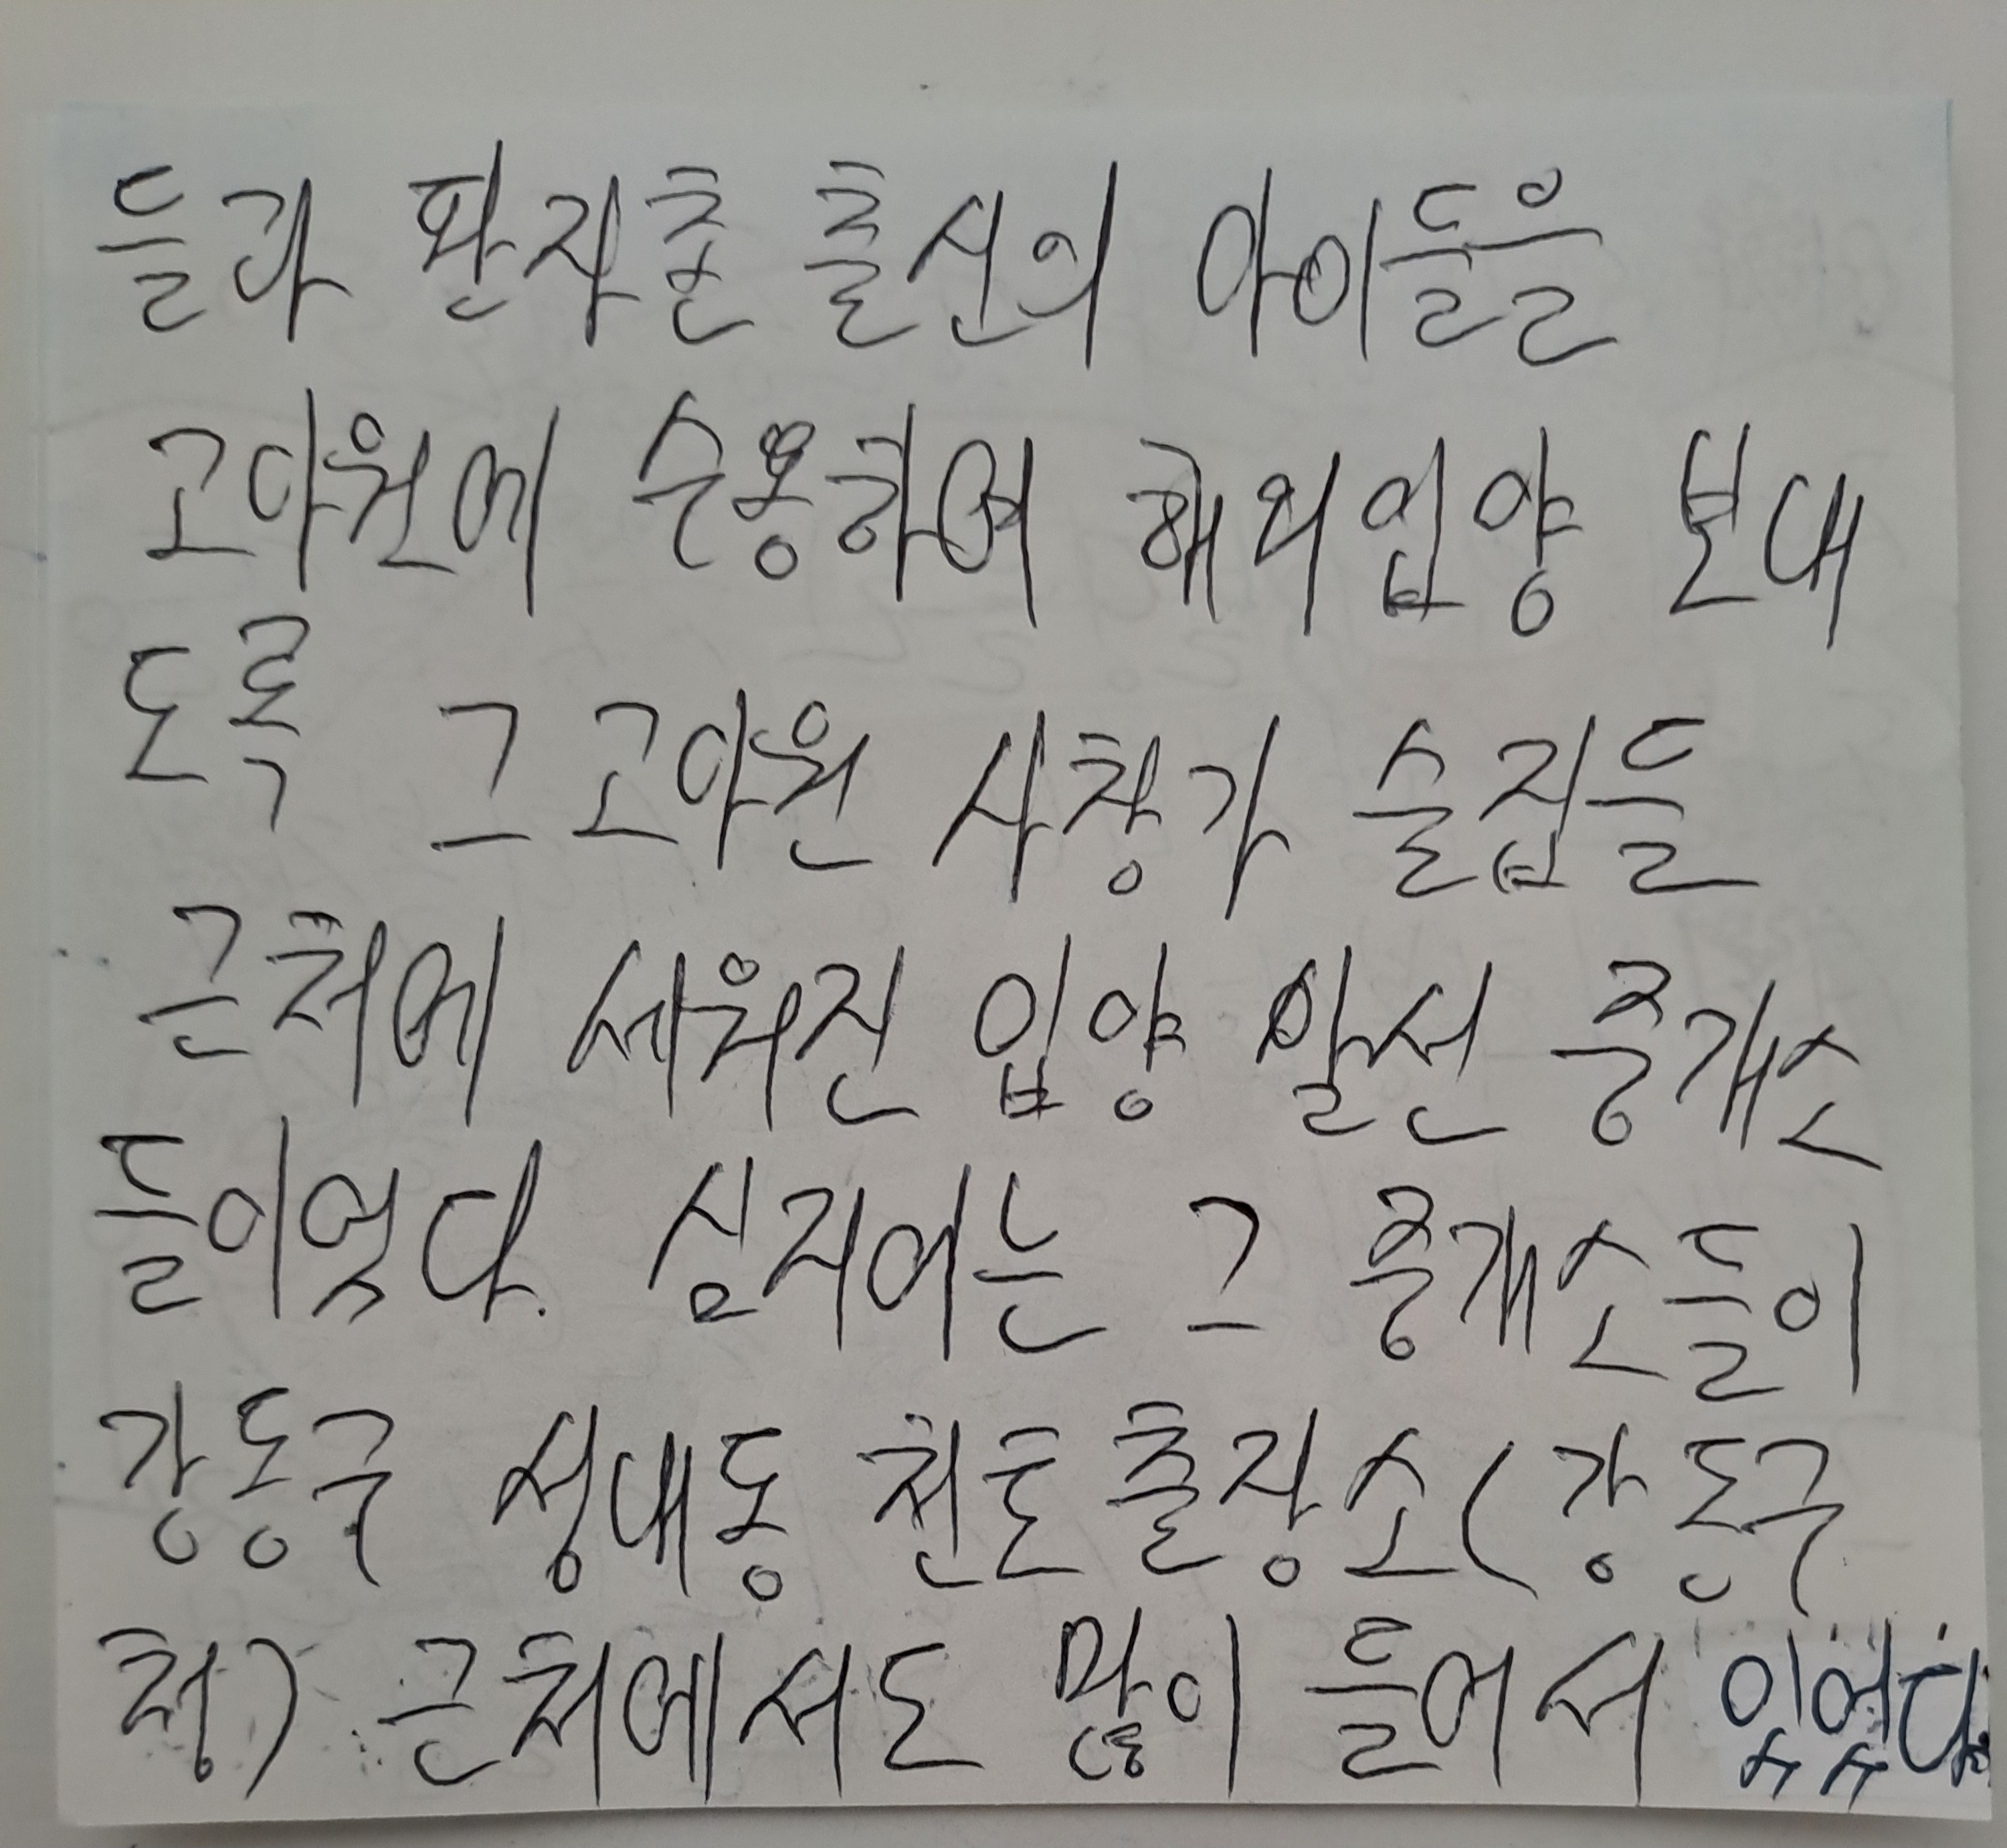 들과 판자촌 출신의 아이들을
고아원에 수용하여 해외입양 보내
도록 그 고아원 사창가 술집들
근처에 세워진 입양 알선 중개소
들이엇다. 심지어는 그 중개소들이
강동구 성내동 천호출장소(강동구
청) 근처에서도 많이 들어서 있었다.